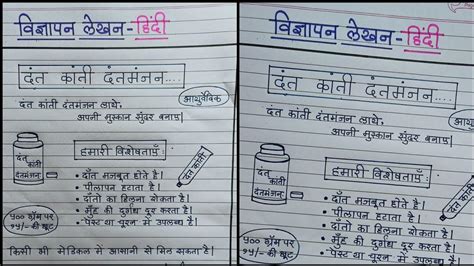 विज्ञापन लेखन - हिंदी
दंत कांती दंतमंजन....
आयुर्वेदिक
दंत कांती दंतमंजन लाये,
अपनी मुस्कान सुंदर बनाए|
हमारी विशेषताएँ:
दंत
कांती
दंतमंजन
दंत कांती
• दाँत मजबूत होते है|
• पीलापन हटाता है|
• दाँतो का हिलना रोकता है|
• मुँह की दुर्गंध दूर करता है|
• पेस्ट या चूरन में उपलब्ध है|
५०० ग्रॅम पर
१५/- की छूट
किसी भी मेडिकल में आसानी से मिल सकता है|
विज्ञापन लेखन - हिंदी
दंत कांती दंतमंजन....
आयुर्वेदिक
दंत कांती दंतमंजन लाये,
अपनी मुस्कान सुंदर बनाए|
हमारी विशेषताएँ:
दंत
कांती
दंतमंजन
दंत कांती
• दाँत मजबूत होते है|
• पीलापन हटाता है|
• दाँतो का हिलना रोकता है|
• मुँह की दुर्गंध दूर करता है|
• पेस्ट या चूरन में उपलब्ध है|
५०० ग्रॅम पर
१५/- की छूट